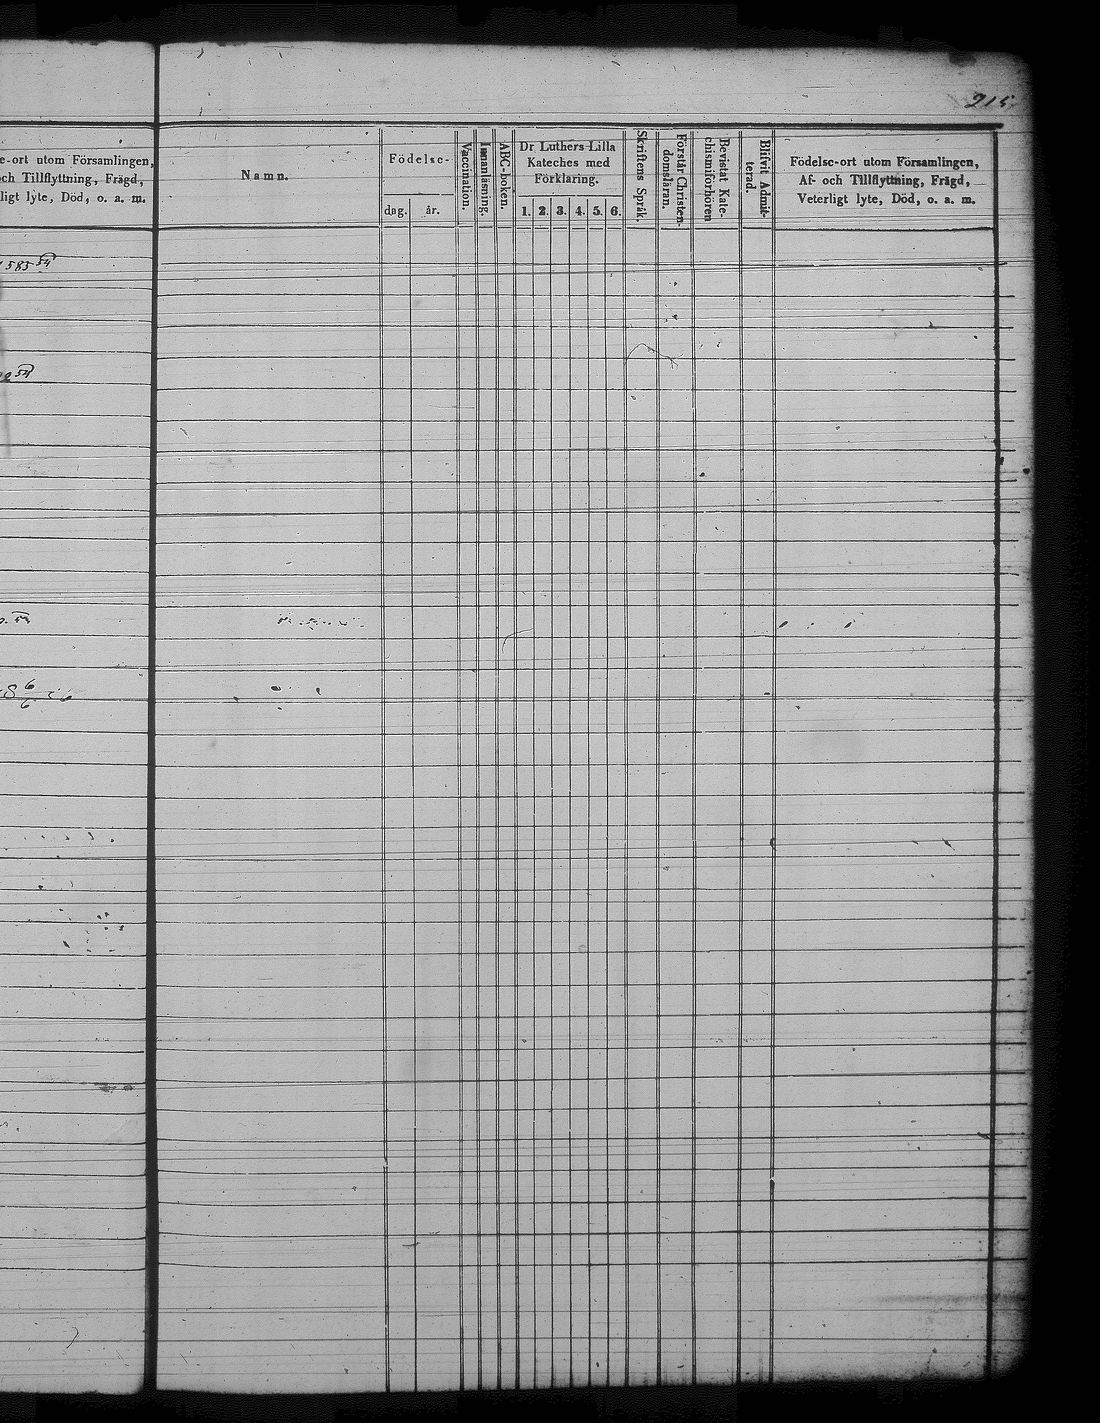 215.
e-ort utom Församlingen,
ch Tillflyttning, Frägd,
ligt lyte, Död, o. a. m.
583 54
54
Namn.
Födelse-
dag. år.
Vaccination.
Innanläsning.
ABC-boken.
Dr Luthers Lilla
Kateches med
Förklaring.
1. 2. 3. 4. 5. 6.
Skriftens Språk.
Förstår Christen-
domsläran.
Bevistat Kate-
chismiförhören
Blifvit Admit-
terad.
Födelse-ort utom Församlingen,
Af- och Tillflyttning, Frägd,
Veterligt lyte, Död, o. a. m.